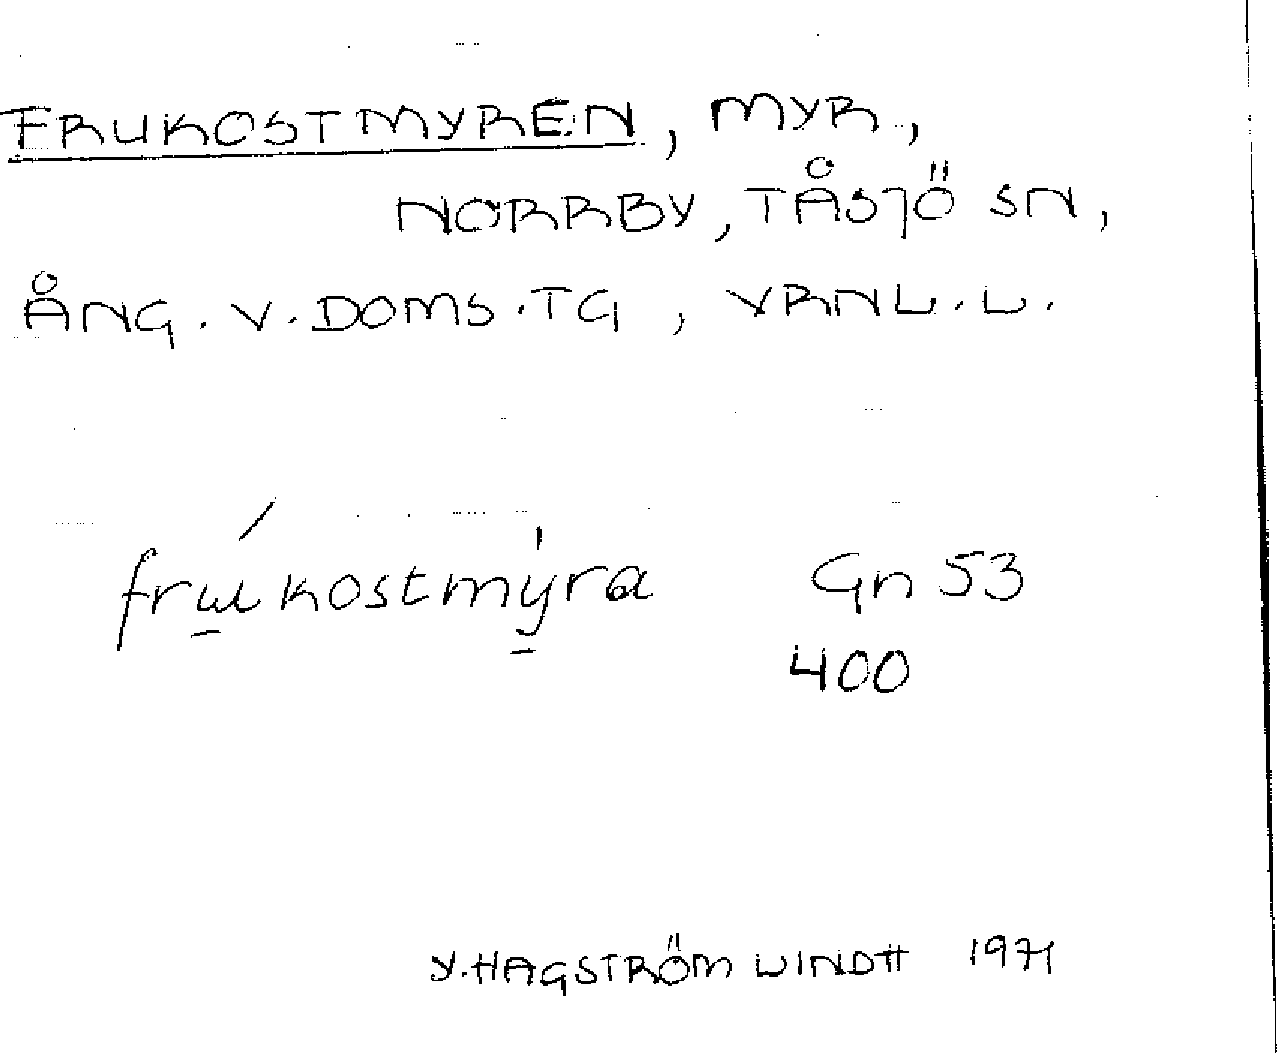 FRUKOSTMYREN, MYR.,
NORRBY, TÅSJÖ SN,
ÅNG. V. DOMS.TG, VRNL.L.
frukostmyra Gn 53
400
Y. HAGSTRÖM WINDH 1971